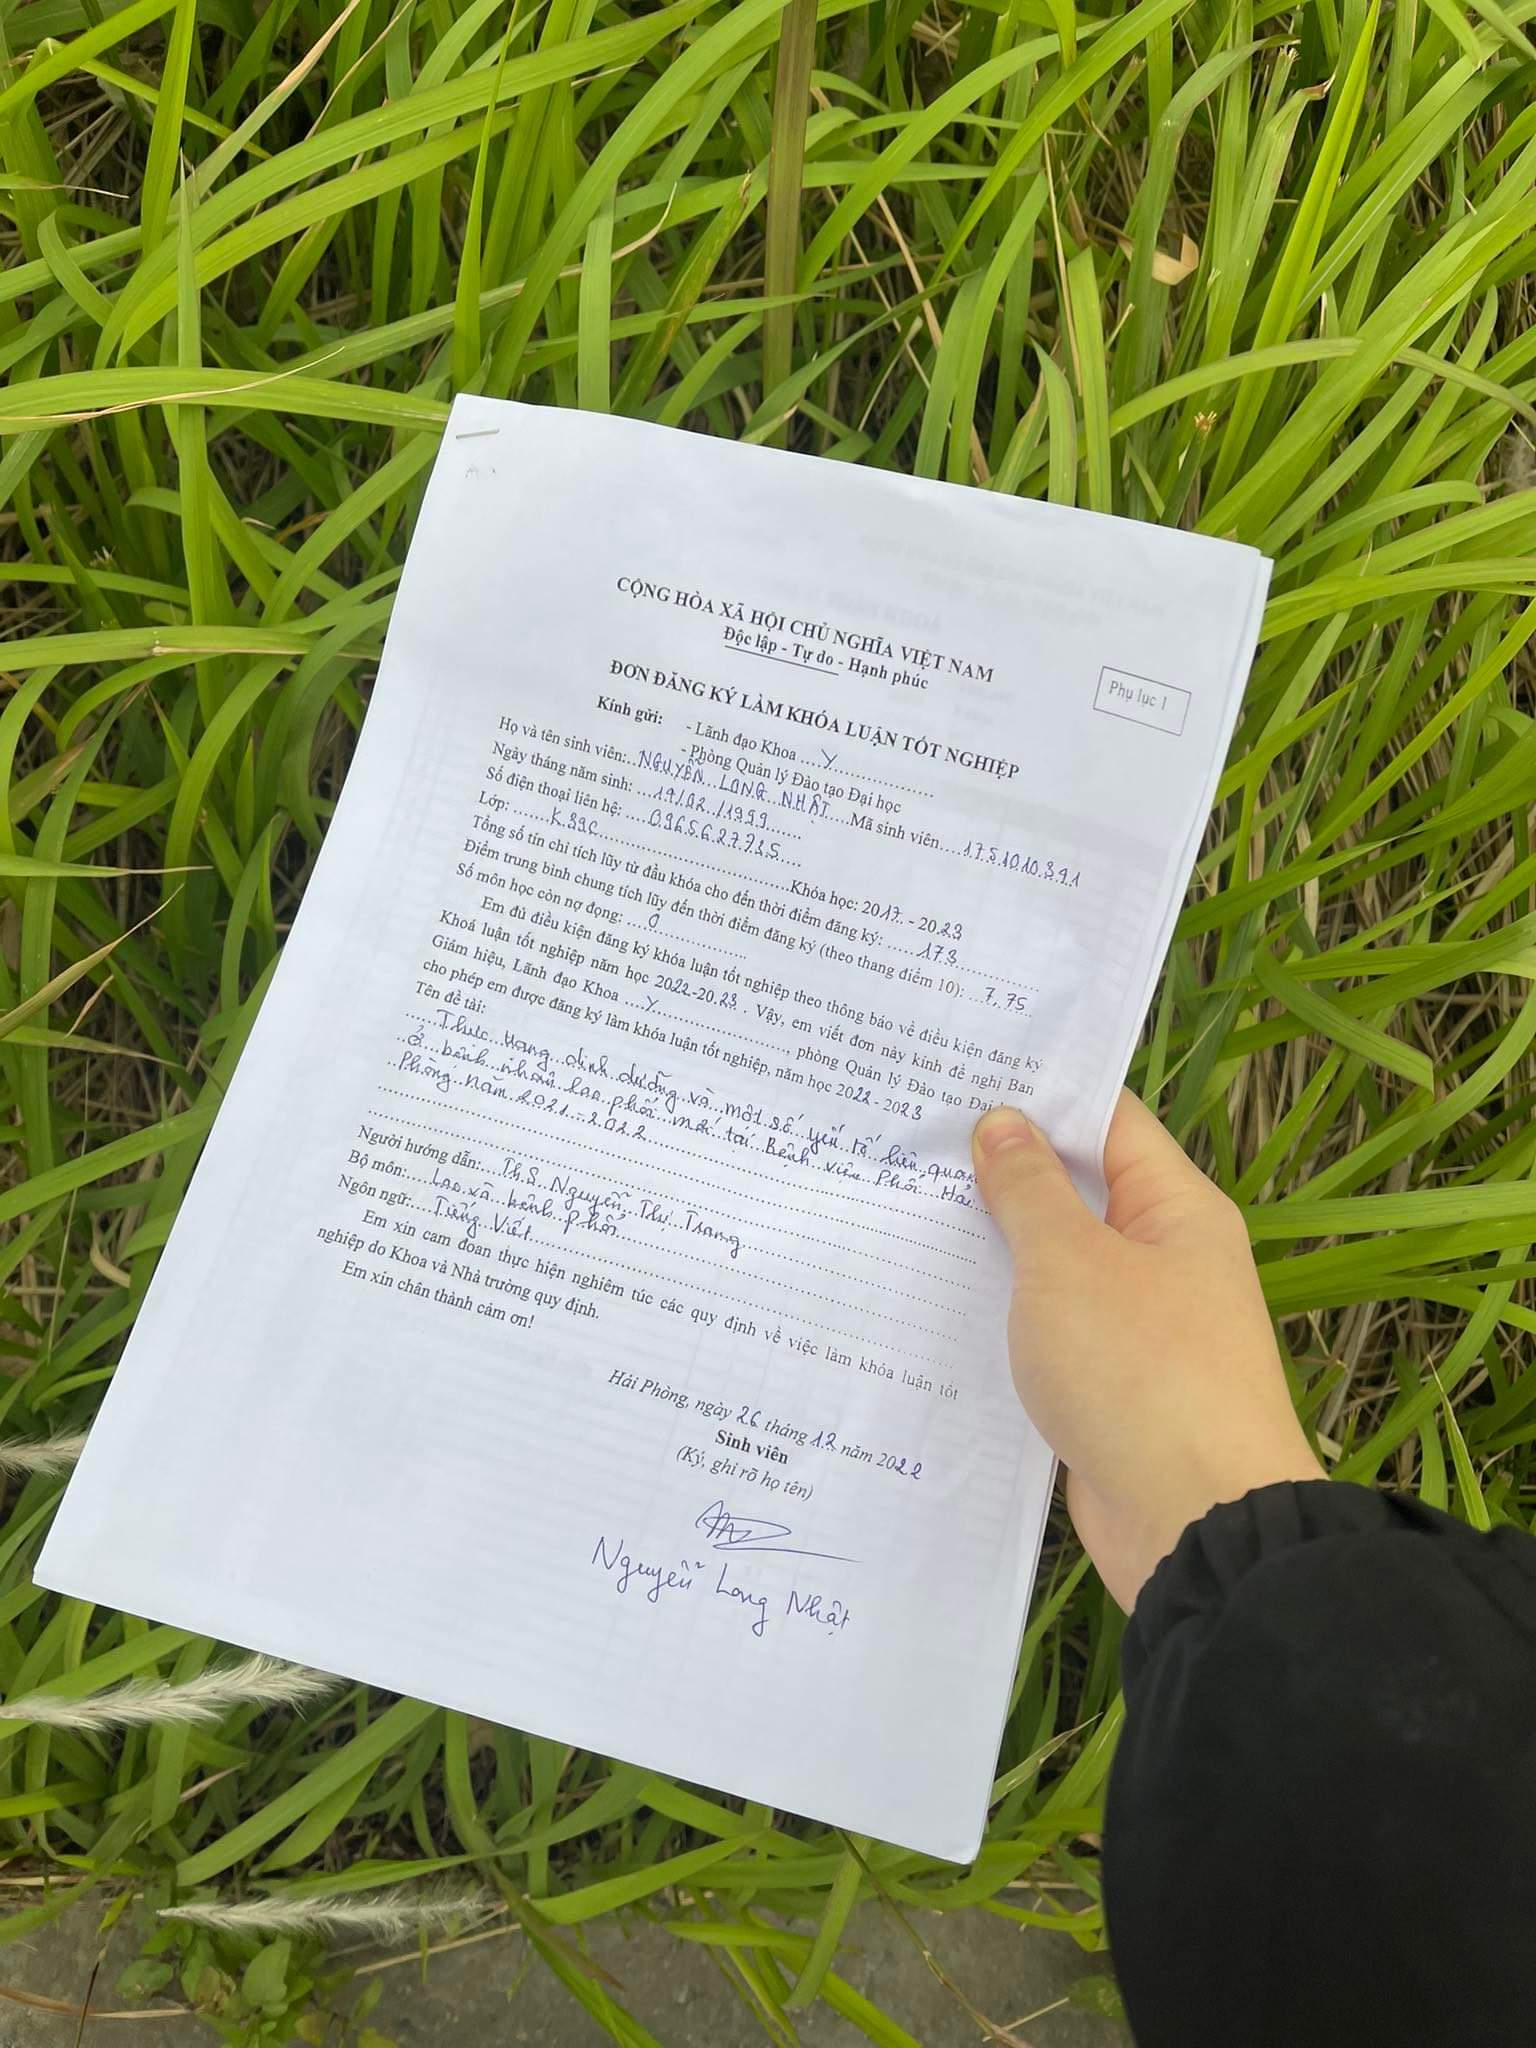 CỘNG HÒA XÃ HỘI CHỦ NGHĨA VIỆT NAM
Độc lập - Tự do - Hạnh phúc
Phụ lục 1
ĐƠN ĐĂNG KÝ LÀM KHÓA LUẬN TỐT NGHIỆP
Kính gửi: - Lãnh đạo Khoa ....Y....................
- Phòng Quản lý Đào tạo Đại học
Họ và tên sinh viên:..NGUYỄN LONG NHẬT.....Mã sinh viên....1751010391
Ngày tháng năm sinh: ...19/02/1999.......
Số điện thoại liên hệ: ....0965627735....
Lớp: .......K39C...............................Khóa học: 2017 - 2023
Tổng số tín chỉ tích lũy từ đầu khóa cho đến thời điểm đăng ký: ......173...................
Điểm trung bình chung tích lũy đến thời điểm đăng ký (theo thang điểm 10): ...7,75
Số môn học còn nợ đọng: ....0..................
Em đủ điều kiện đăng ký khóa luận tốt nghiệp theo thông báo về điều kiện đăng ký
Khoá luận tốt nghiệp năm học 2022-2023 . Vậy, em viết đơn này kính đề nghị Ban
Giám hiệu, Lãnh đạo Khoa ....Y........................, phòng Quản lý Đào tạo Đại
cho phép em được đăng ký làm khóa luận tốt nghiệp, năm học 2022 - 2023
Tên đề tài:
......Thực trạng dinh dưỡng và một số yếu tố liên quan
..ở bệnh nhân lao phổi mới tại Bệnh viện Phổi Hải
..Phòng năm 2021 - 2022......................................
Người hướng dẫn:...Th.S Nguyễn Thị Trang..............................
Bộ môn:.....Lao và bệnh phổi..............................
Ngôn ngữ:....Tiếng Việt..............................
Em xin cam đoan thực hiện nghiêm túc các quy định về việc làm khóa luận tốt
nghiệp do Khoa và Nhà trường quy định.
Em xin chân thành cảm ơn!
Hải Phòng, ngày 26 tháng 12 năm 2022
Sinh viên
(Ký, ghi rõ họ tên)
Nguyễn Long Nhật